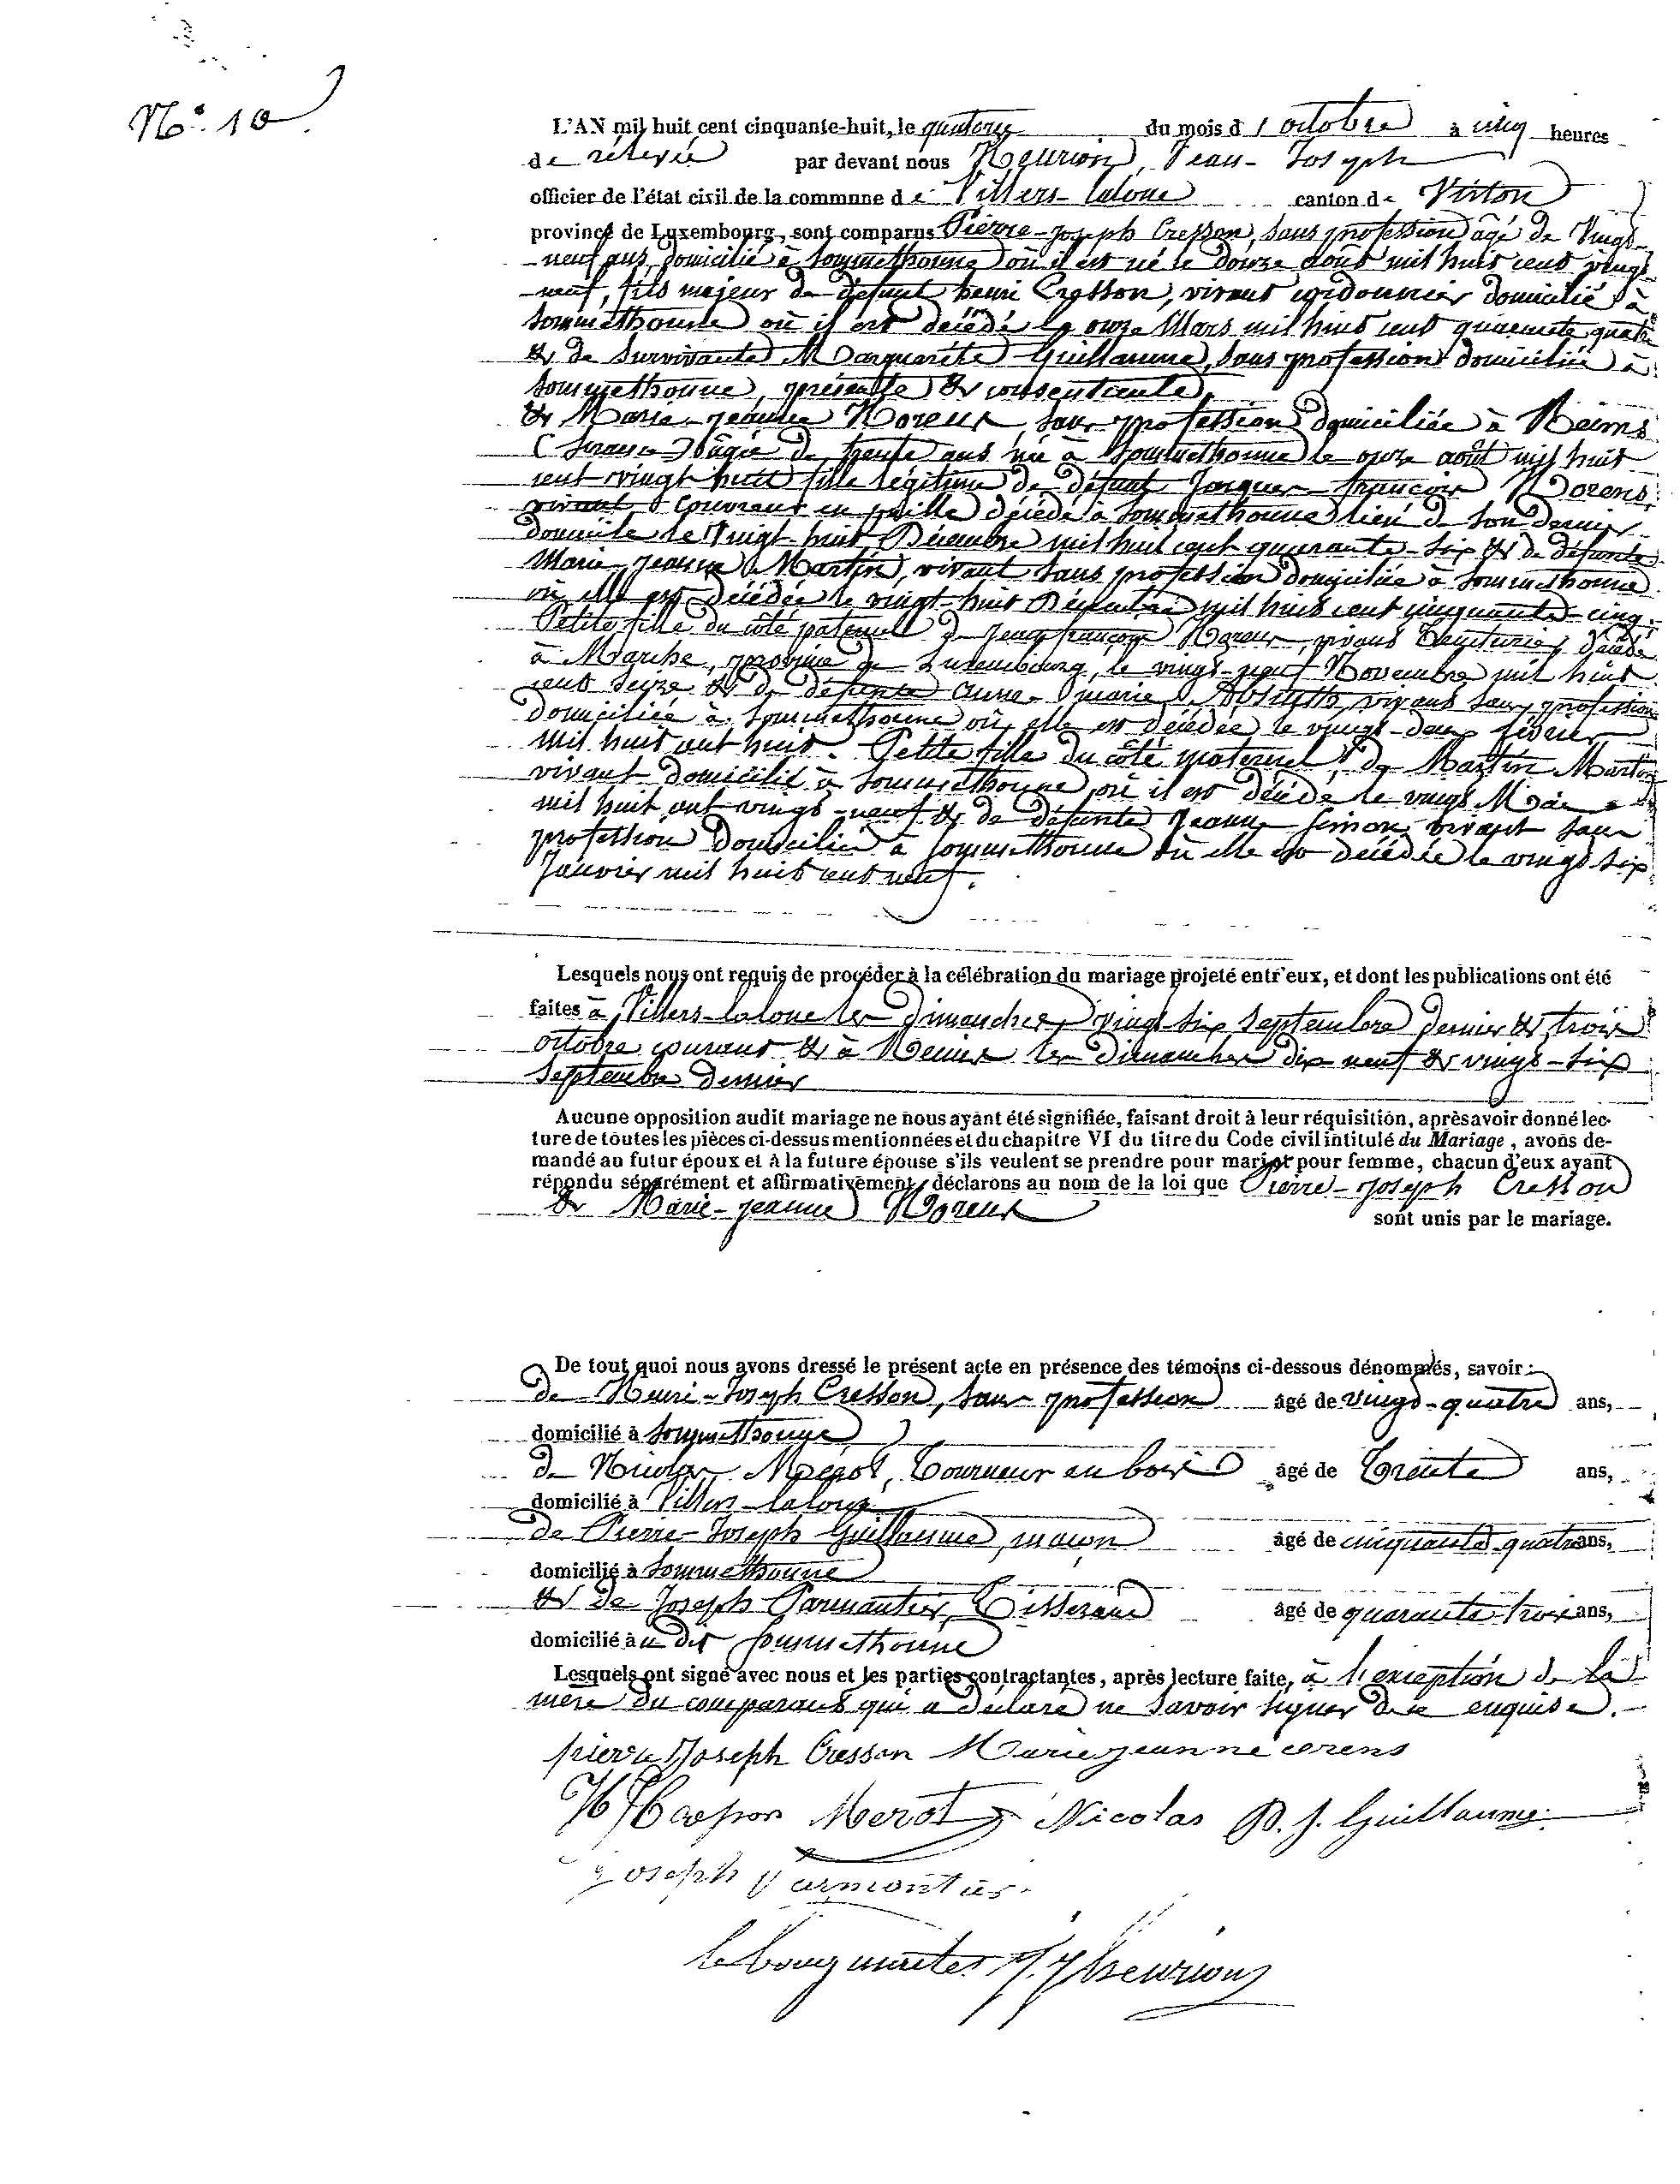 N.° 10
L'AN mil huit cent cinquante-huit, le quatorze du mois d'octobre à cinq heures
de relevée par devant nous Henrion, Jean-Joseph
officier de l'état civil de la commune de Villers-laloue canton de Virton
province de Luxembourg, sont comparus Pierre-Joseph Cresson, sans profession âgé de Vingt-
-neuf ans, domicilié à Sommethonne où il est né le douze août mil huit cent vingt
-neuf, fils majeur de défunt henri Cresson, vivant cordonnier domicilié à
Sommethonne où il est décédé le onze Mars mil huit cent quarante quatre
& de survivante Marguerite Guillaume, sans profession domiciliée à
Sommethonne, présente & consentante,
& Marie-jeanne sans profession domiciliée à Reims
(france) âgée de trente ans née à Sommethonne le onze août mil huit
cent vingt huit fille légitime de défunt Jacques-françois
vivant couvreur en paille décédé à Sommethonne lieu de son dernier
domicile le Vingt-huit Décembre mil huit cent quarante-six & de défunte
Marie-jeanne Martin, vivant sans profession domiciliée à Sommethonne
où elle est décédée le vingt-huit Décembre mil huit cent cinquante-cinq.
Petite fille du côté paternel de Jean françois vivant décédé
à Marche, province de Luxembourg, le vingt-neuf Novembre mil huit
cent seize & de défunte anne-marie vivant sans profession
domiciliée à Sommethonne où elle est décédée le vingt-deux février
mil huit cent huit. Petite fille du côté maternel de Martin Martin
vivant domicilié à Sommethonne où il est décédé le vingt
mil huit cent vingt-neuf & de défunte Jeanne Simon vivant sans
profession domiciliée à Sommethonne où elle est décédée le vingt six
Janvier mil huit cent neuf.
Lesquels nous ont requis de procéder à la célébration du mariage projeté entr'eux, et dont les publications ont été
faites à Villers-laloue les dimanches vingt six septembre dernier & trois
octobre courant & à Reims les dimanches dix neuf & vingt-six
septembre dernier
Aucune opposition audit mariage ne nous ayant été signifiée, faisant droit à leur réquisition, après avoir donné lec-
ture de toutes les pièces ci-dessus mentionnées et du chapitre VI du titre du Code civil intitulé du Mariage, avons de-
mandé au futur époux et à la future épouse s'ils veulent se prendre pour mari et pour femme, chacun d'eux ayant
répondu séparément et affirmativement, déclarons au nom de la loi que Pierre-Joseph Cresson
& Marie-jeanne
sont unis par le mariage.
De tout quoi nous avons dressé le présent acte en présence des témoins ci-dessous dénommés, savoir:
de Henri-Joseph Cresson, sans profession âgé de vingt-quatre ans,
domicilié à Sommethonne
de Nicolas Mérot, Tourneur en bois âgé de Trente ans,
domicilié à Villers-laloue
de Pierre-Joseph Guillaume, maçon âgé de cinquante-quatre ans,
domicilié à Sommethonne
& de Joseph Parmantier, Tisserand âgé de quarante-trois ans,
domicilié à u dit Sommethonne
Lesquels ont signé avec nous et les parties contractantes, après lecture faite, à l'exception de la
mère du comparant qui a déclaré ne savoir signer de ce enquise.
pierre Joseph Cresson Marie jeanne
HJ Cresson Merot Nicolas P. J. Guillaume
joseph Parmentier
le bourgmestre J. J Henrion